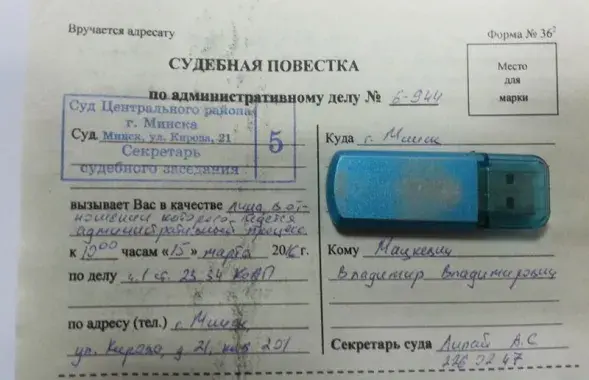 Вручается адресату
Форма № 36²
СУДЕБНАЯ ПОВЕСТКА
по административному делу № 5-944
Место
для
марки
Суд Центрального района
г. Минска
Суд Минск, ул. Кирова, 21
Секретарь
судебного заседания
5
вызывает Вас в качестве лица в от-
ношении которого ведется
административный процесс
к 10 00 часам «15» марта 2016 г.
по делу ч.1 ст. 23.34 КоАП
по адресу (тел.) г. Минск
ул. Кирова, д 21, каб 201
Куда г. Минск
Кому Мацкевич
Владимир Владимирович
Секретарь суда А.С
226 02 47